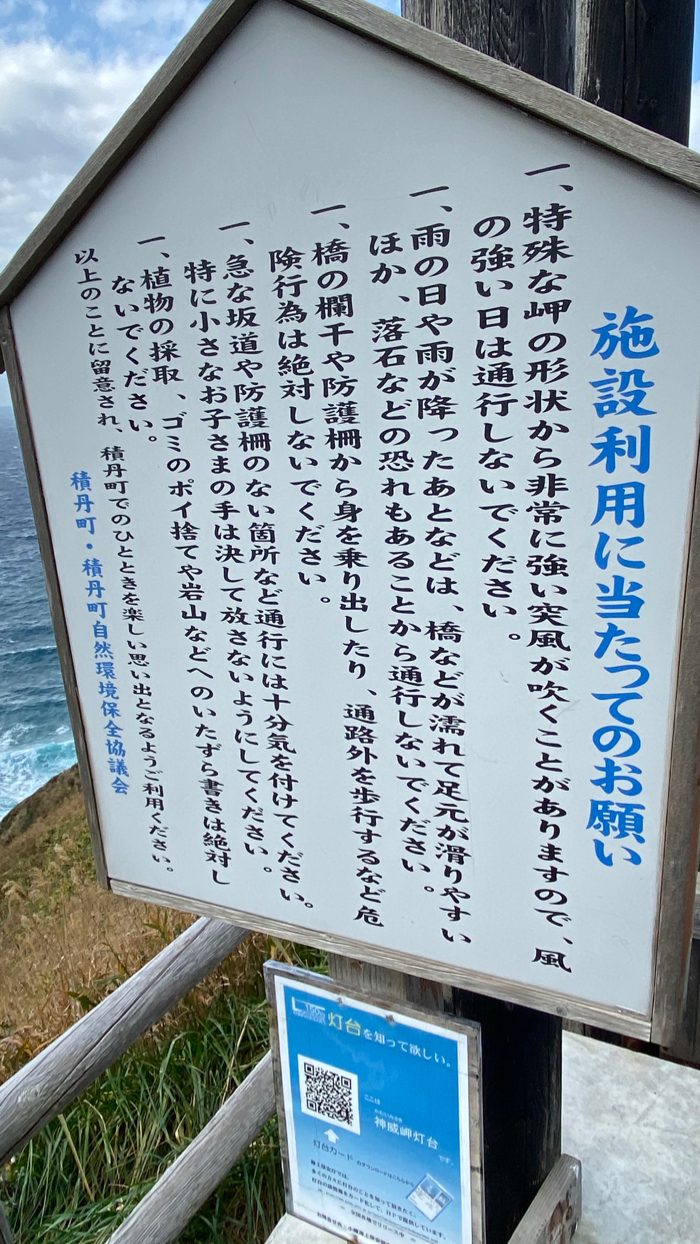 施設利用に当たってのお願い
一、特殊な岬の形状から非常に強い突風が吹くことがありますので、風
の強い日は通行しないでください。
一、雨の日や雨が降ったあとなどは、橋などが濡れて足元が滑りやすい
ほか、落石などの恐れもあることから通行しないでください。
一、橋の欄干や防護柵から身を乗り出したり、通路外を歩行するなど危
険行為は絶対しないでください。
一、急な坂道や防護柵のない箇所など通行には十分気を付けてください。
特に小さなお子さまの手は決して放さないようにしてください。
一、植物の採取、ゴミのポイ捨てや岩山などへのいたずら書きは絶対し
ないでください。
以上のことに留意され、積丹町でのひとときを楽しい思い出となるようご利用ください。
積丹町・積丹町自然環境保全協議会
灯台を知って欲しい。
ここは
かむいみさき
神威岬灯台
です。
灯台カード のダウンロードはこちらから
海上保安庁では、
多くの方々に灯台のことを知って頂きたく、
灯台の諸情報をカード化して、HPで提供しています。